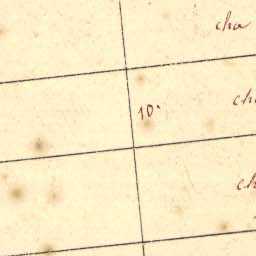 cha
10. ch
ch